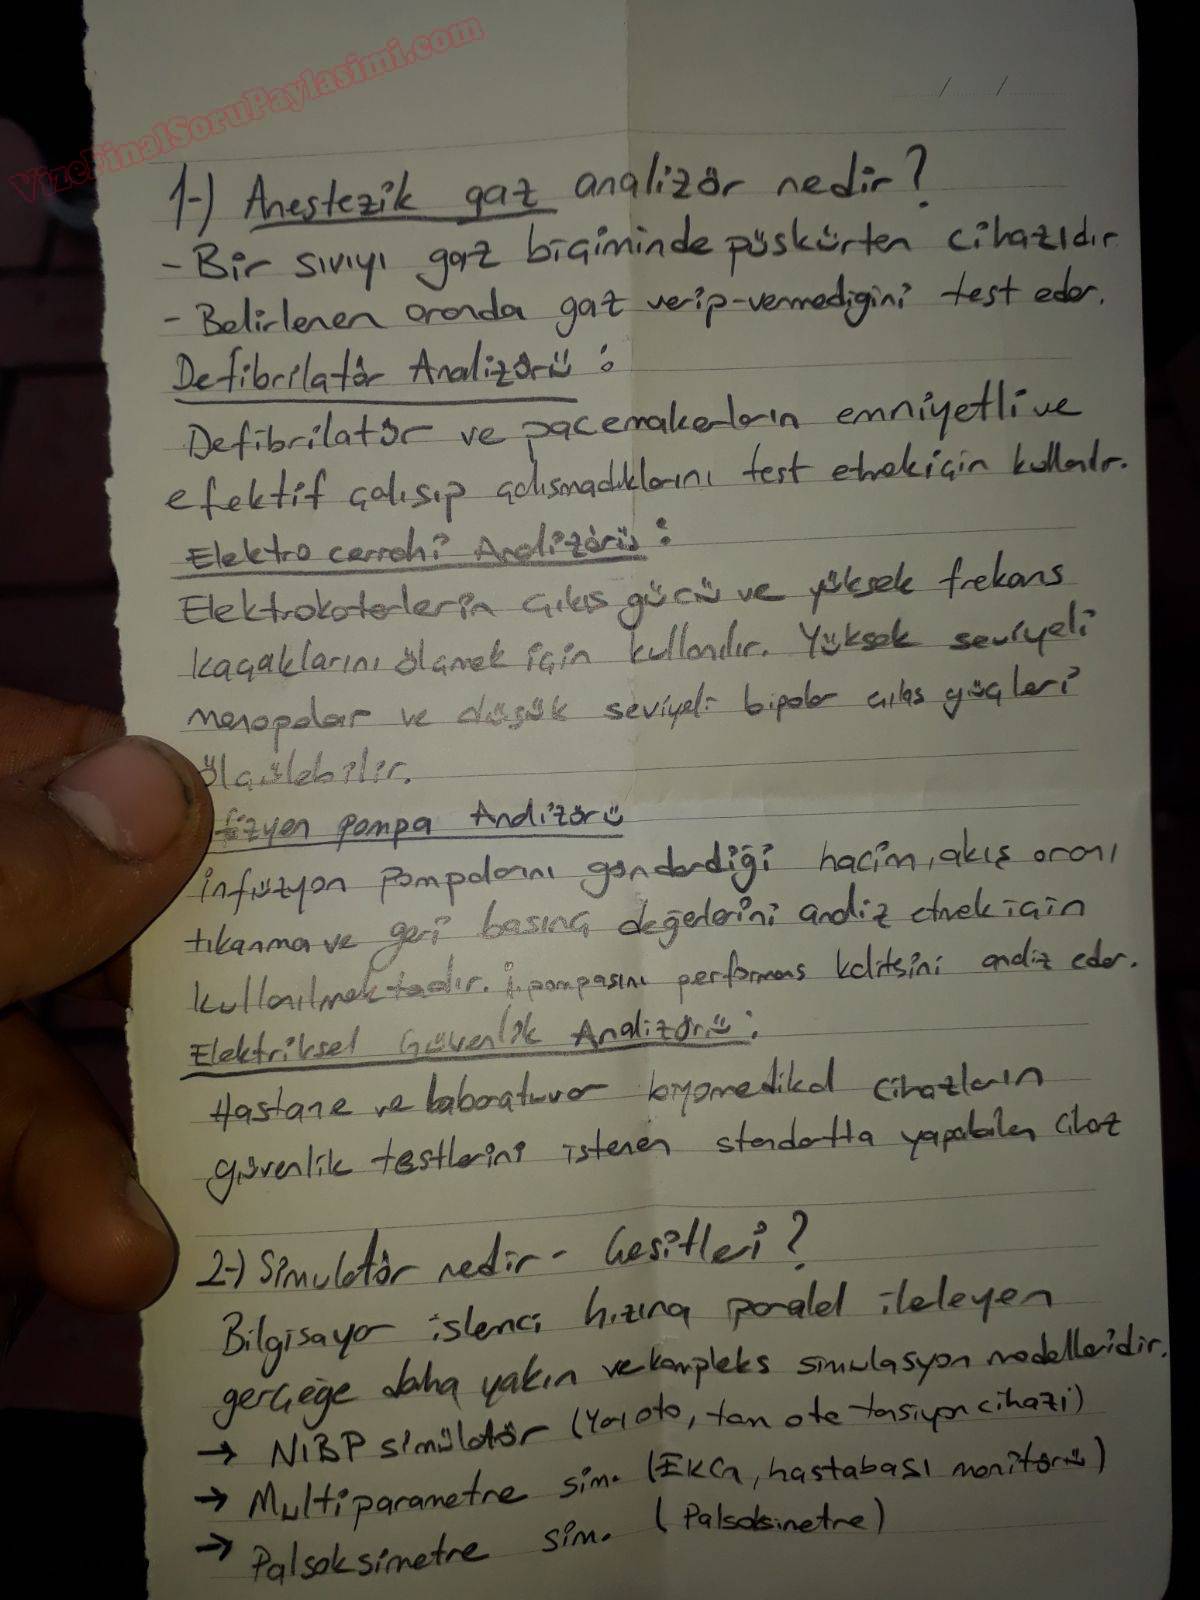 VizeFinalSoruPaylasimi.com
/ /
1-) Anestezik gaz analizör nedir?
- Bir sıvıyı gaz biçiminde püskürten cihazıdır
- Belirlenen oranda gaz verip-vermediğini test eder.
Defibrilatör Analizörü :
Defibrilatör ve pacemakerların emniyetli ve
efektif çalışıp çalışmadıklarını test etmek için kullanılır.
Elektro cerrahi Analizörü :
Elektrokoterlerin çıkış gücü ve yüksek frekans
kaçaklarını ölçmek için kullanılır. Yüksek seviyeli
monopolar ve düşük seviyeli bipolar çıkış güçleri
ölçülebilir.
füzyon pompa Analizörü
infüzyon pompalarını gönderdiği hacim, akış oranı
tıkanma ve geri basınç değerlerini analiz etmek için
kullanılmaktadır. i. pompasını performans kalitesini analiz eder.
Elektriksel Güvenlik Analizörü :
Hastane ve laboratuvar biyomedikal cihazların
güvenlik testlerini istenen standartta yapabilen cihaz
2-) Simulatör nedir - Çeşitleri?
Bilgisayar işlemci hızına paralel ileleyen
gerçeğe daha yakın ve kompleks simulasyon modelleridir.
→ NIBP simülatör (Yarı oto, tam oto tansiyon cihazı)
→ Multiparametre sim. (EKG, hastabaşı monitörü)
→ Palsoksimetre sim. (Palsoksimetre)